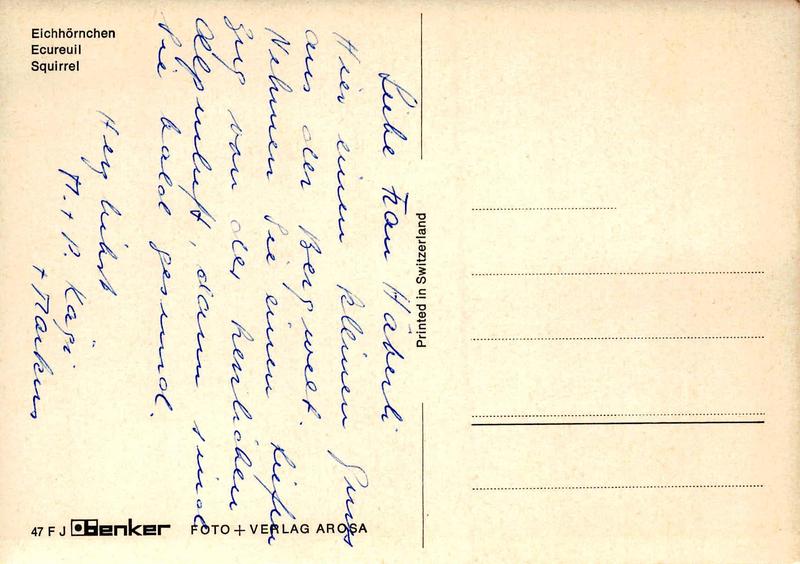 Eichhörnchen
Ecureuil
Squirrel
Liebe Frau Häberli
Hier einen kleinen Gruss
aus der Bergwelt.
Nehmen Sie einen tiefen
Zug von der herrlichen
Alpenluft, dann sind
Sie bald gesund.
Herzlichst
H. + P. Kägi
+ Markus
47 F J benker FOTO + VERLAG AROSA
Printed in Switzerland